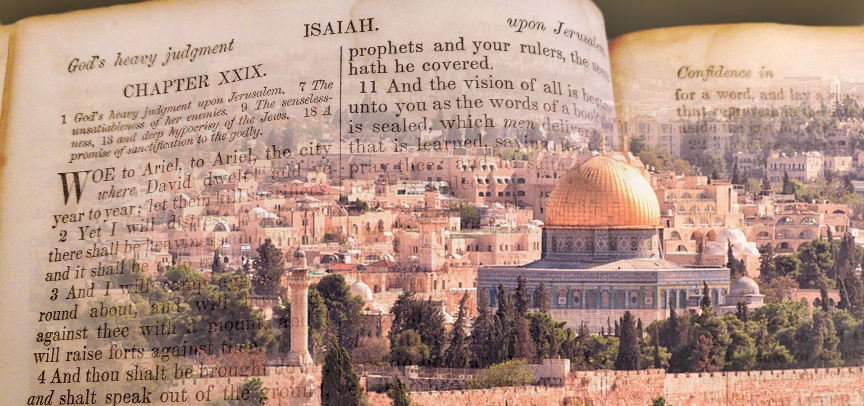 God's heavy judgment
ISAIAH.
upon Jerusalem
CHAPTER XXIX.
1 God's heavy judgment upon Jerusalem. 7 The
unsatiableness of her enemies. 9 The senseless-
ness, 13 and deep hypocrisy of the Jews. 18 A
promise of sanctification to the godly.
WOE to Ariel, to Ariel, the city
where David dwelt! add ye
year to year; let them kill
2 Yet I will distress
there shall be heaviness
and it shall be
3 And I will camp
round about, and will
against thee with a mount, and
will raise forts against thee.
4 And thou shalt be brought
and shalt speak out of the ground,
prophets and your rulers, the
hath he covered.
11 And the vision of all is
unto you as the words of a book
is sealed, which men deliver
that is learned, saying,
pray thee:
Confidence in
for a word, and lay
that reproveth
aside
22